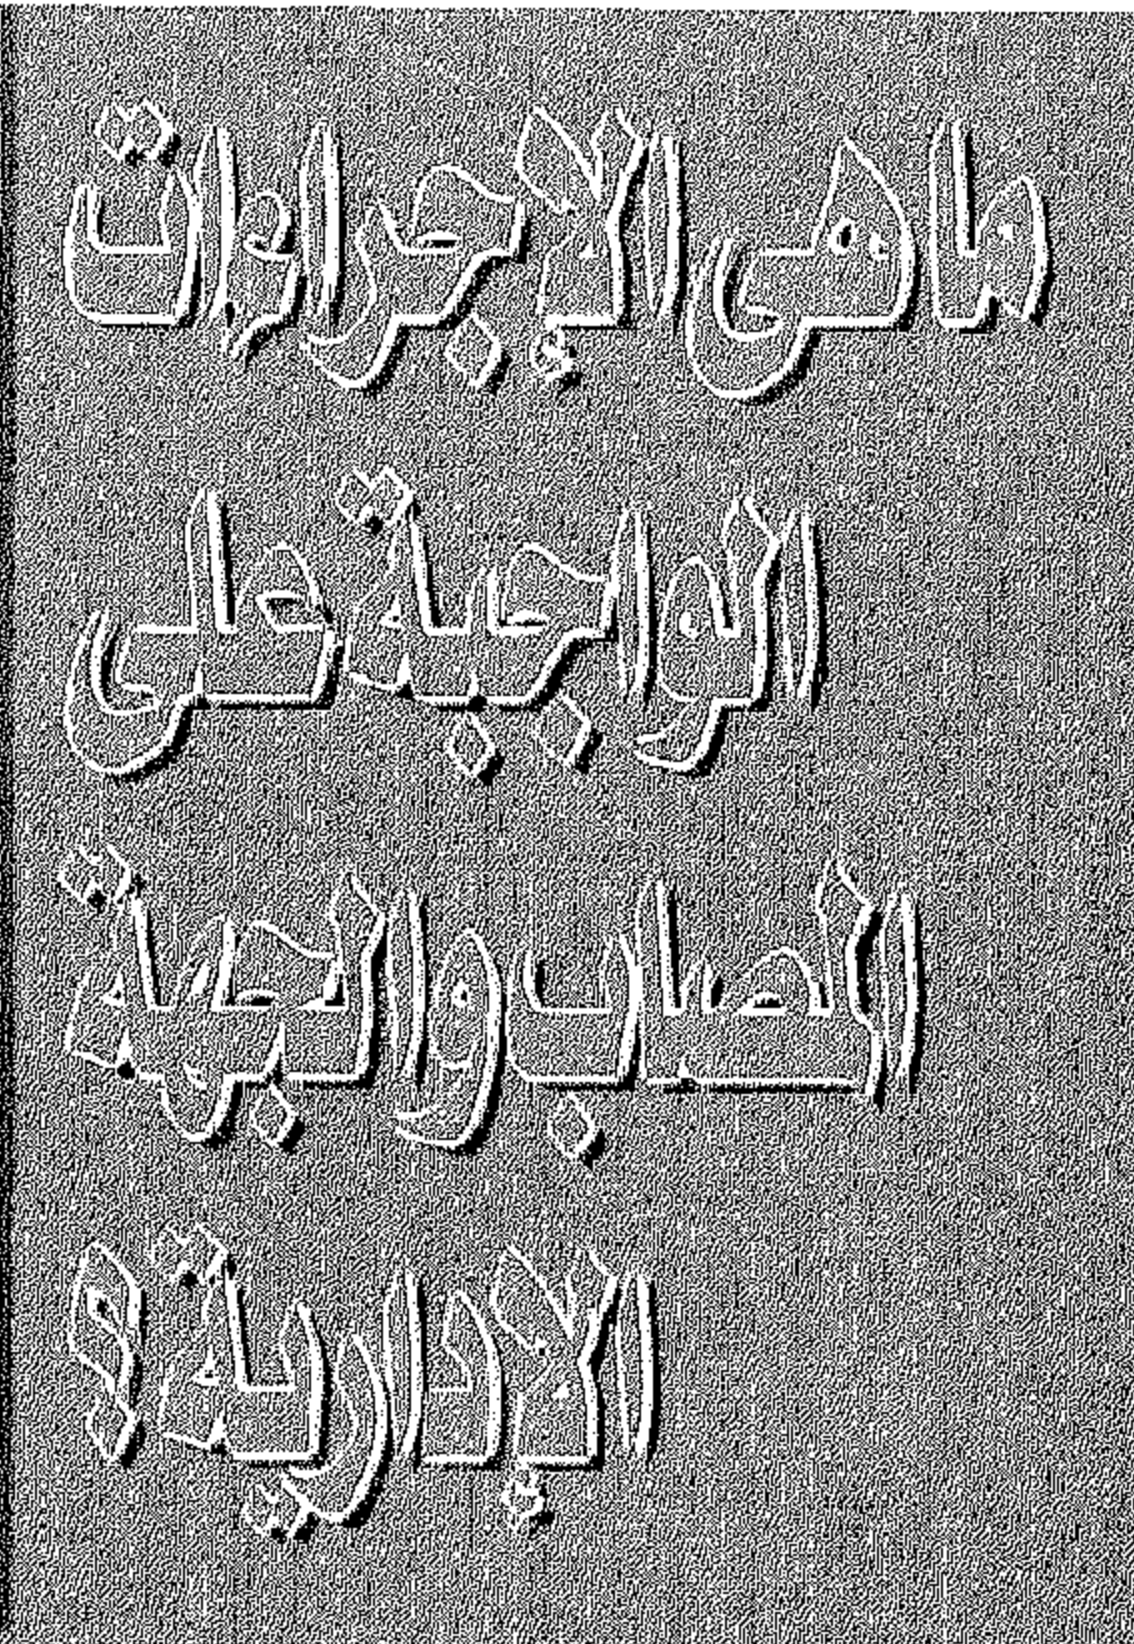 ماهى الإجراءات
الواجبة على
المصاب والجهة
الإدارية ؟